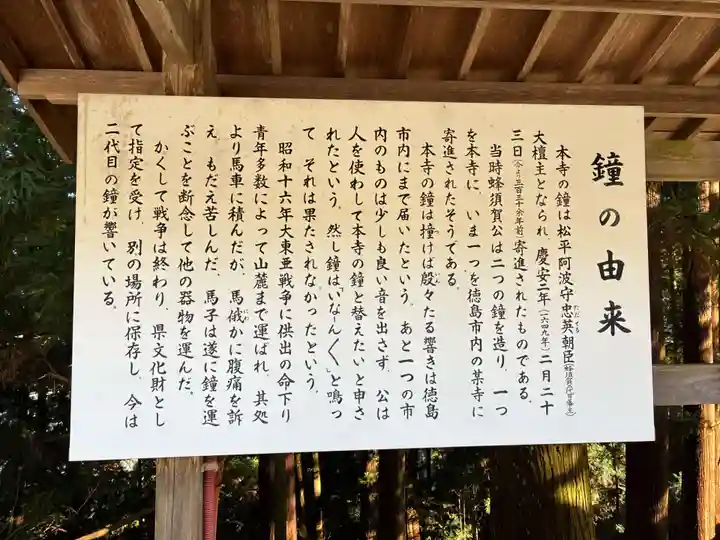 鐘の由来
本寺の鐘は松平阿波守忠英朝臣(蜂須賀八代目藩主)
ただてる
大檀主となられ、慶安二年(一六四九年)二月二十
三日(今より三百三十余年前)寄進されたものである。
当時蜂須賀公は二つの鐘を造り、一つ
を本寺に、いま一つを徳島市内の某寺に
寄進されたそうである。
本寺の鐘は撞けば殷々たる響きは徳島
市内にまで届いたという。あと一つの市
内のものは少しも良い音を出さず、公は
人を使わして本寺の鐘と替えたいと申さ
れたという。然し鐘は「いなん〱」と鳴っ
て それは果たされなかったという。
昭和十六年大東亜戦争に供出の命下り
青年多数によって山麓まで運ばれ、其処
より馬車に積んだが、馬俄かに腹痛を訴
え、もだえ苦しんだ。馬子は遂に鐘を運
ぶことを断念して他の器物を運んだ。
かくして戦争は終わり、県文化財とし
て指定を受け、別の場所に保存し、今は
二代目の鐘が響いている。